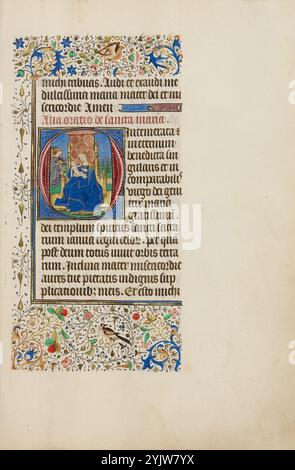 Audi et exaudi me
dulcissima maria mater dei et mi
sericordie Amen
Alia oratio de sancta maria.
O intemerata et
in eternum
benedicta sin
gularis et in
comparabilis
virgo dei geni
trix maria
gratissimū
dei templum spiritus sancti sacra
rium ianua regni celor. per quā
post deum totus vivit orbis terra
rum. Inclina mater misericordie
aures tue pietatis indignis sup
plicationib; meis. Et esto michi
alamy - 2YJW7YX